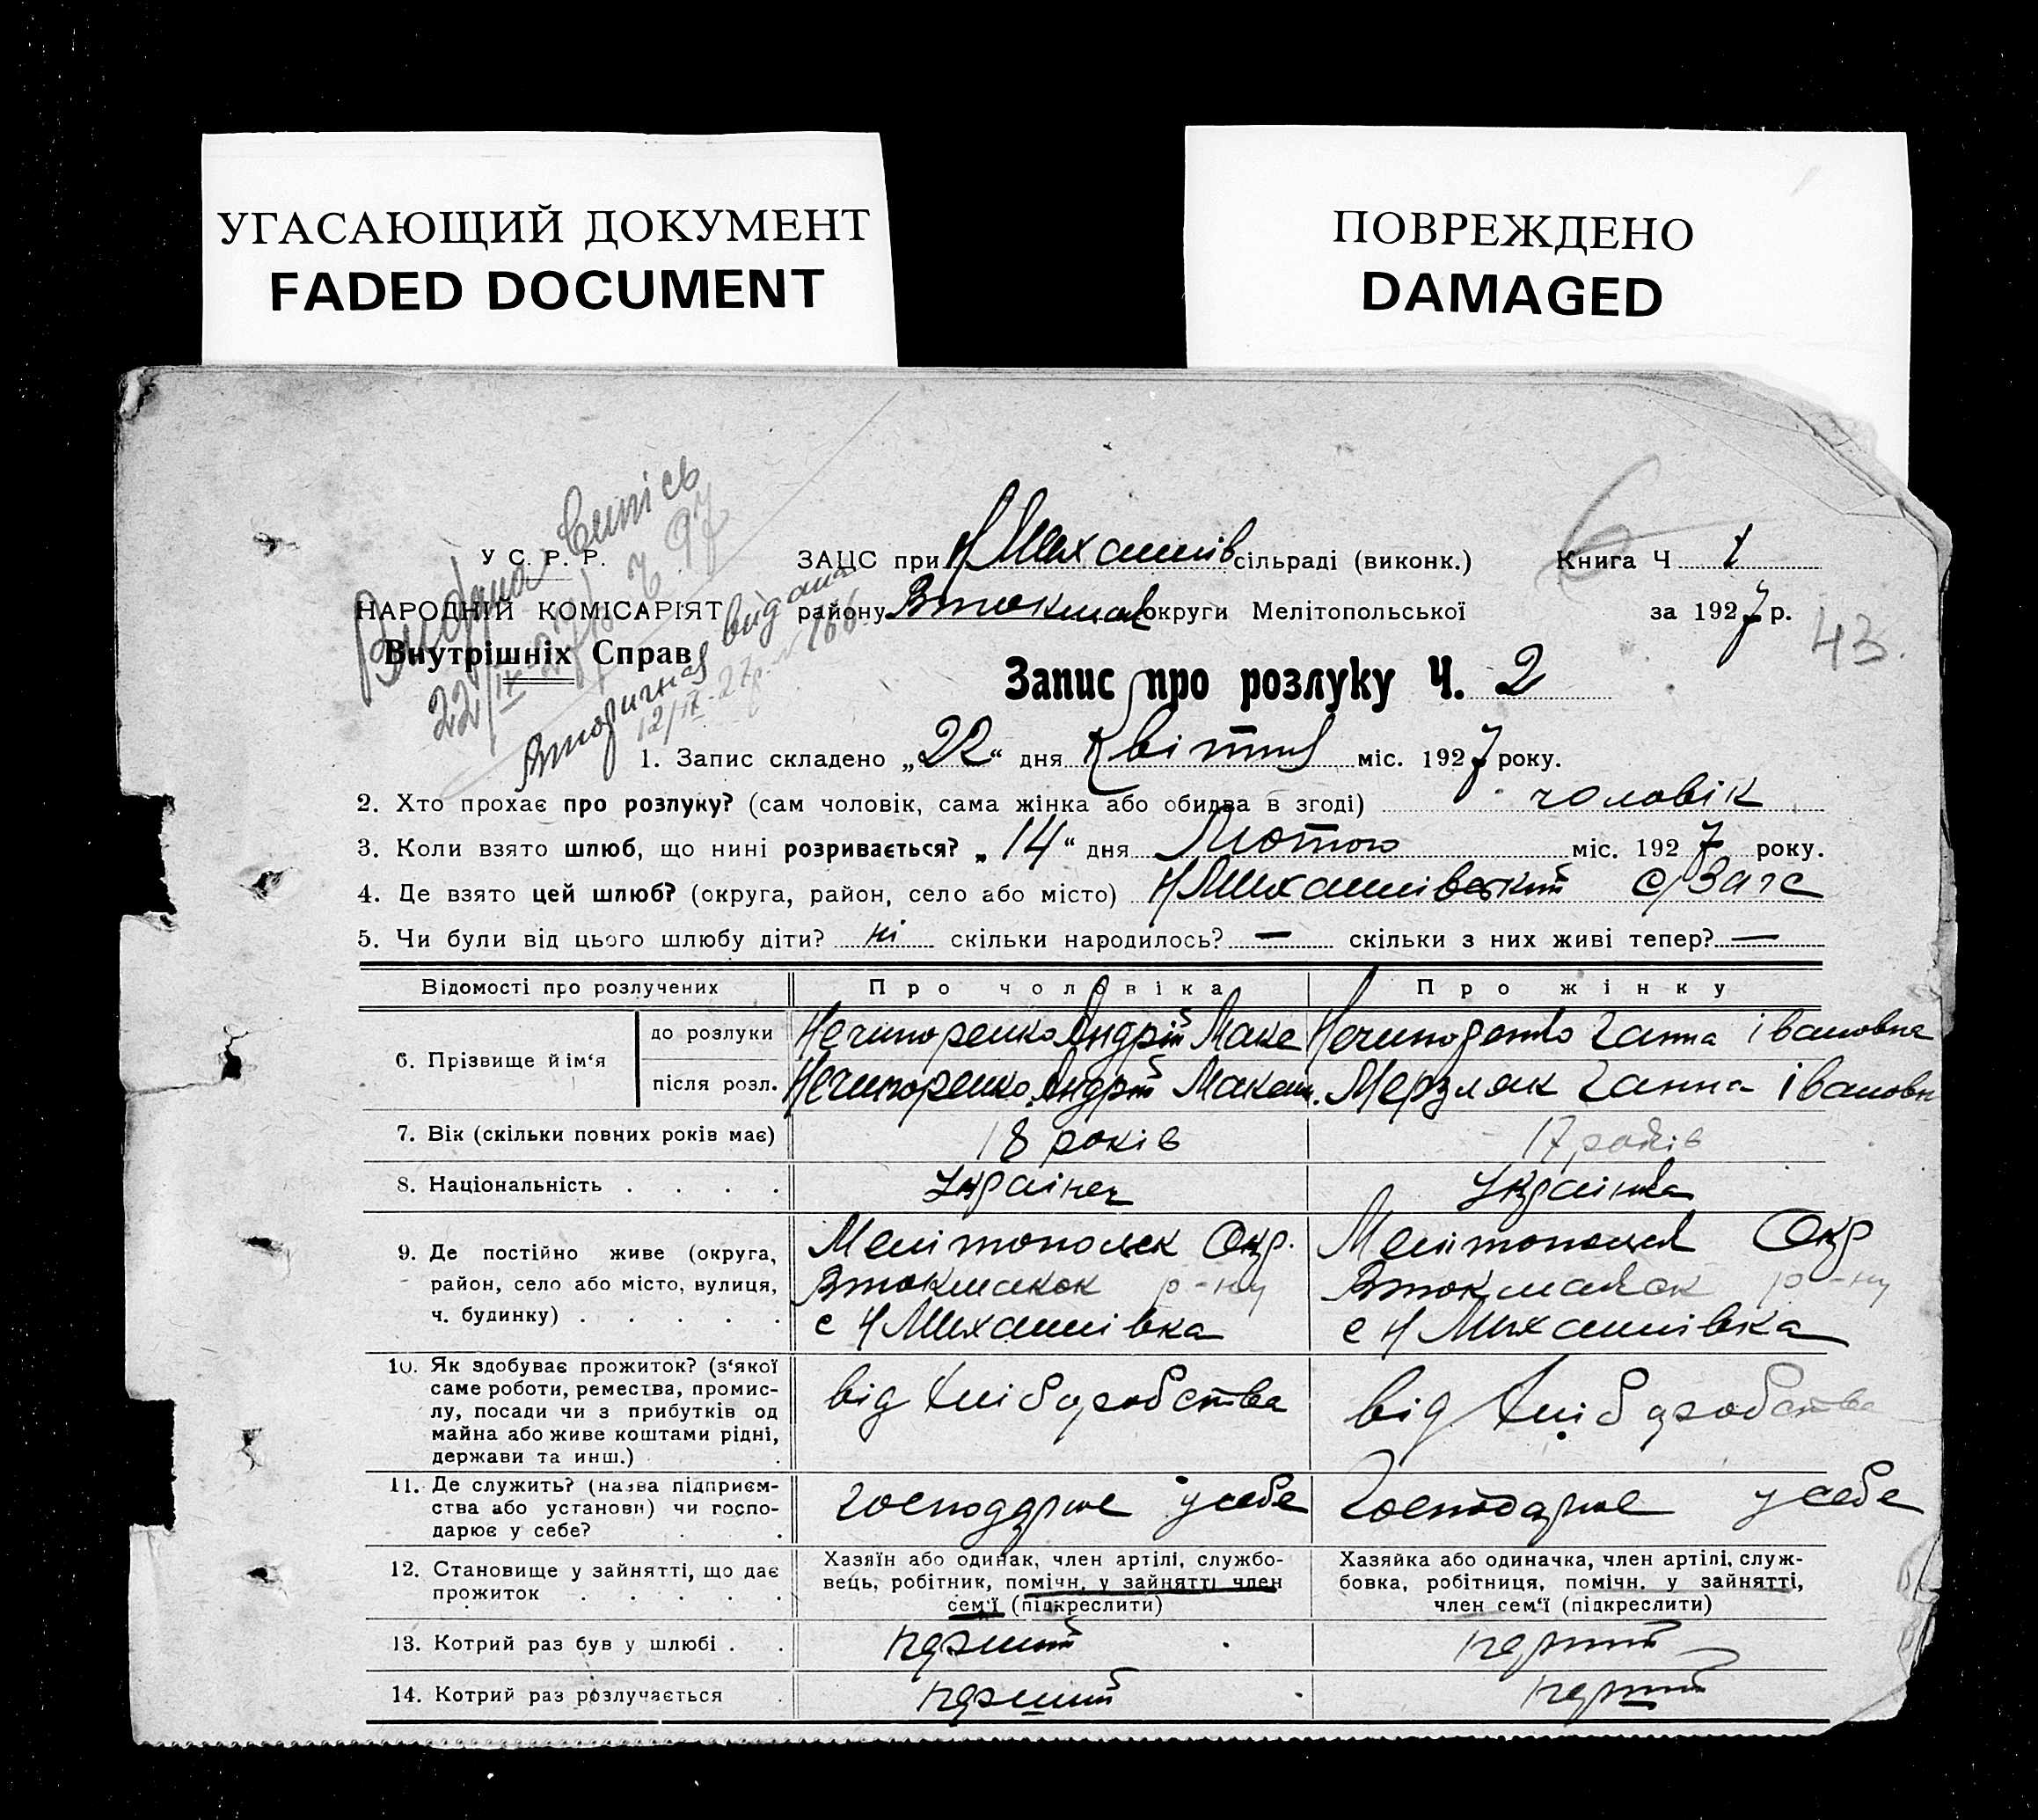 УГАСАЮЩИЙ ДОКУМЕНТ
FADED DOCUMENT
ПОВРЕЖДЕНО
DAMAGED
6
Видана
22/IV-27
ч 97
Вторична видана
12/IX-27р. № 166
У С. Р. Р.
НАРОДНІЙ КОМІСАРІЯТ
Внутрішніх Справ
ЗАЦС при Н Михайлів сільраді (виконк.) Книга Ч 1
району Втокмак округи Мелітопольської за 1927 р.
43.
Запис про розлуку Ч. 2
1. Запис складено „22“ дня Квітня міс. 1927 року.
2. Хто прохає про розлуку? (сам чоловік, сама жінка або обидва в згоді) чоловік
3. Коли взято шлюб, що нині розривається? „14“ дня Лютого міс. 1927 року.
4. Де взято цей шлюб? (округа, район, село або місто) Н Михайлівский с/Загс
5. Чи були від цього шлюбу діти? ні скільки народилось? — скільки з них живі тепер? —
Відомості про розлучених Про чоловіка Про жінку
6. Прізвище й ім‘я
до розлуки Нечипоренко Андрій Мака Нечипоренко Ганна Івановна
після розл. Нечипоренко Андрій Макам. Мерзляк Ганна Івановн
7. Вік (скільки повних років має) 18 років 17 років
8. Національність . . . . Українец Українка
9. Де постійно живе (округа, Мелітопольск Окр. Мелітопольск Окр
район, село або місто, вулиця, Втокмакск р-ну Втокмакск р-ну
ч. будинку) . . . . . с Н Михайлівка с Н Михайлівка
10. Як здобуває прожиток? (з‘якої
саме роботи, ремества, промис- від хлібаробства від хлібаробства
лу, посади чи з прибутків од
майна або живе коштами рідні,
держави та инш.) .
11. Де служить? (назва підприєм-
ства або установи) чи госпо- господарює у себе Господарює у себе
дарює у себе? . .
12. Становище у зайнятті, що дає
прожиток . . . . .
Хазяїн або одинак, член артілі, службо-
вець, робітник, помічн. у зайнятті член
сем‘ї (підкреслити)
Хазяйка або одиначка, член артілі, служ-
бовка, робітниця, помічн. у зайнятті,
член сем‘ї (підкреслити)
13. Котрий раз був у шлюбі . . перший перший
14. Котрий раз розлучається . перший перший